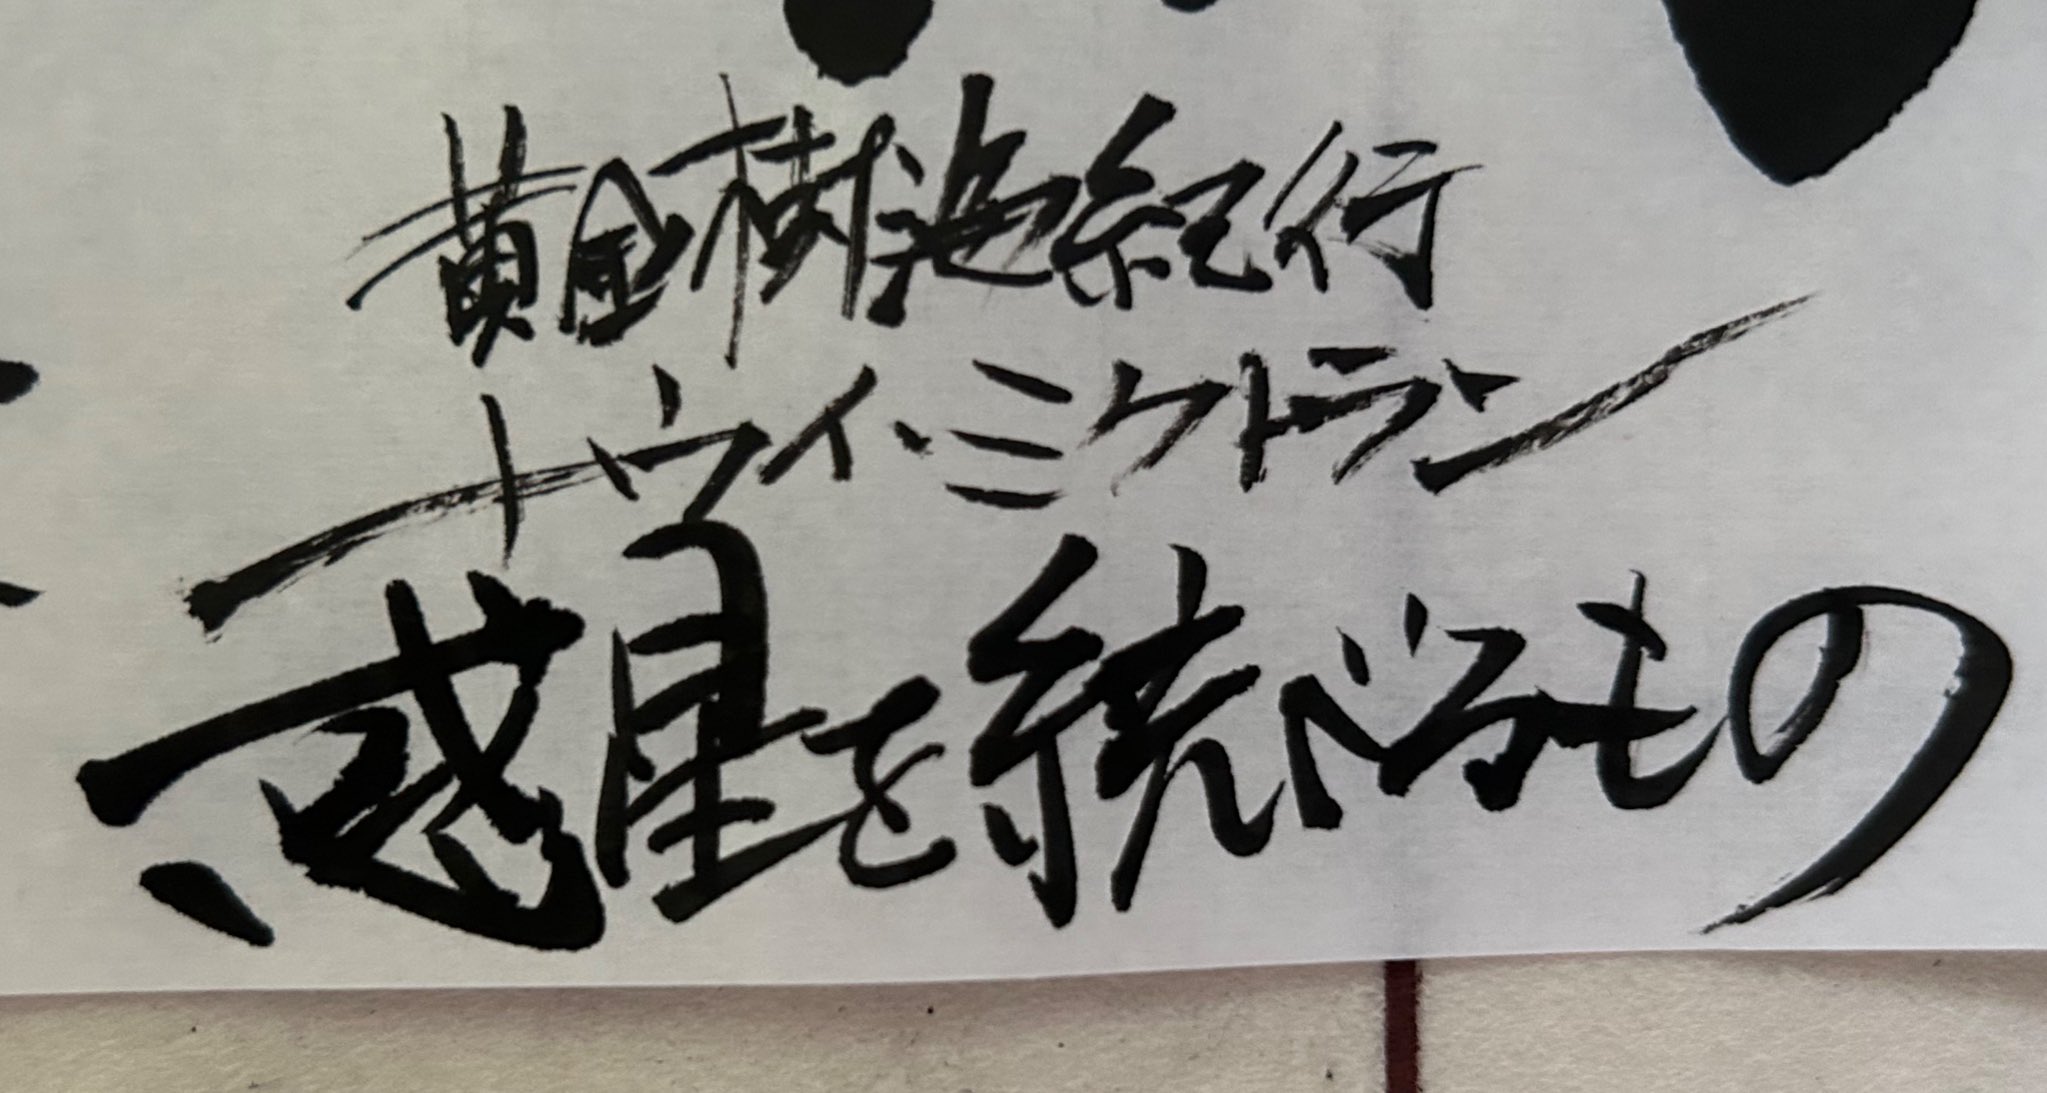 黄金樹海紀行
ナウイ・ミクトラン
惑星を統べるもの